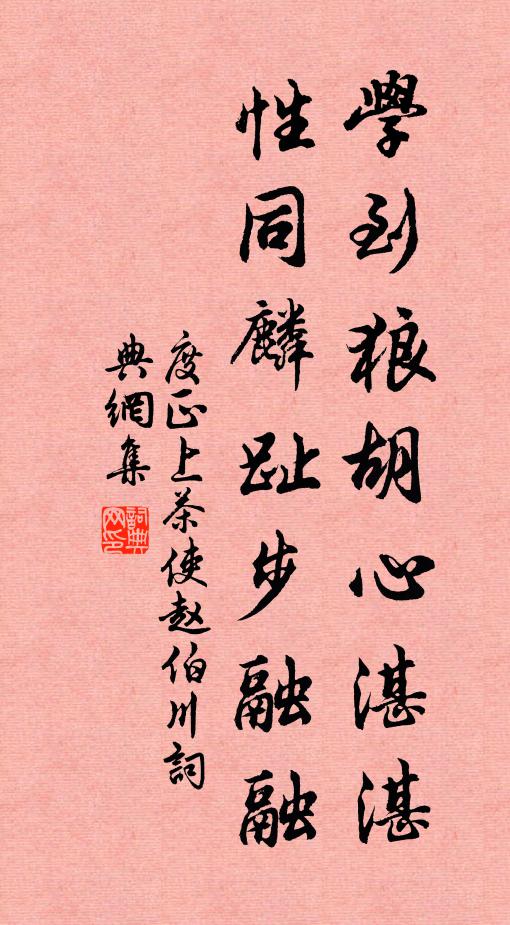 學到狼胡心湛湛
性同麟趾步融融
度正上茶使赵伯川詞
典網集
詞典网印